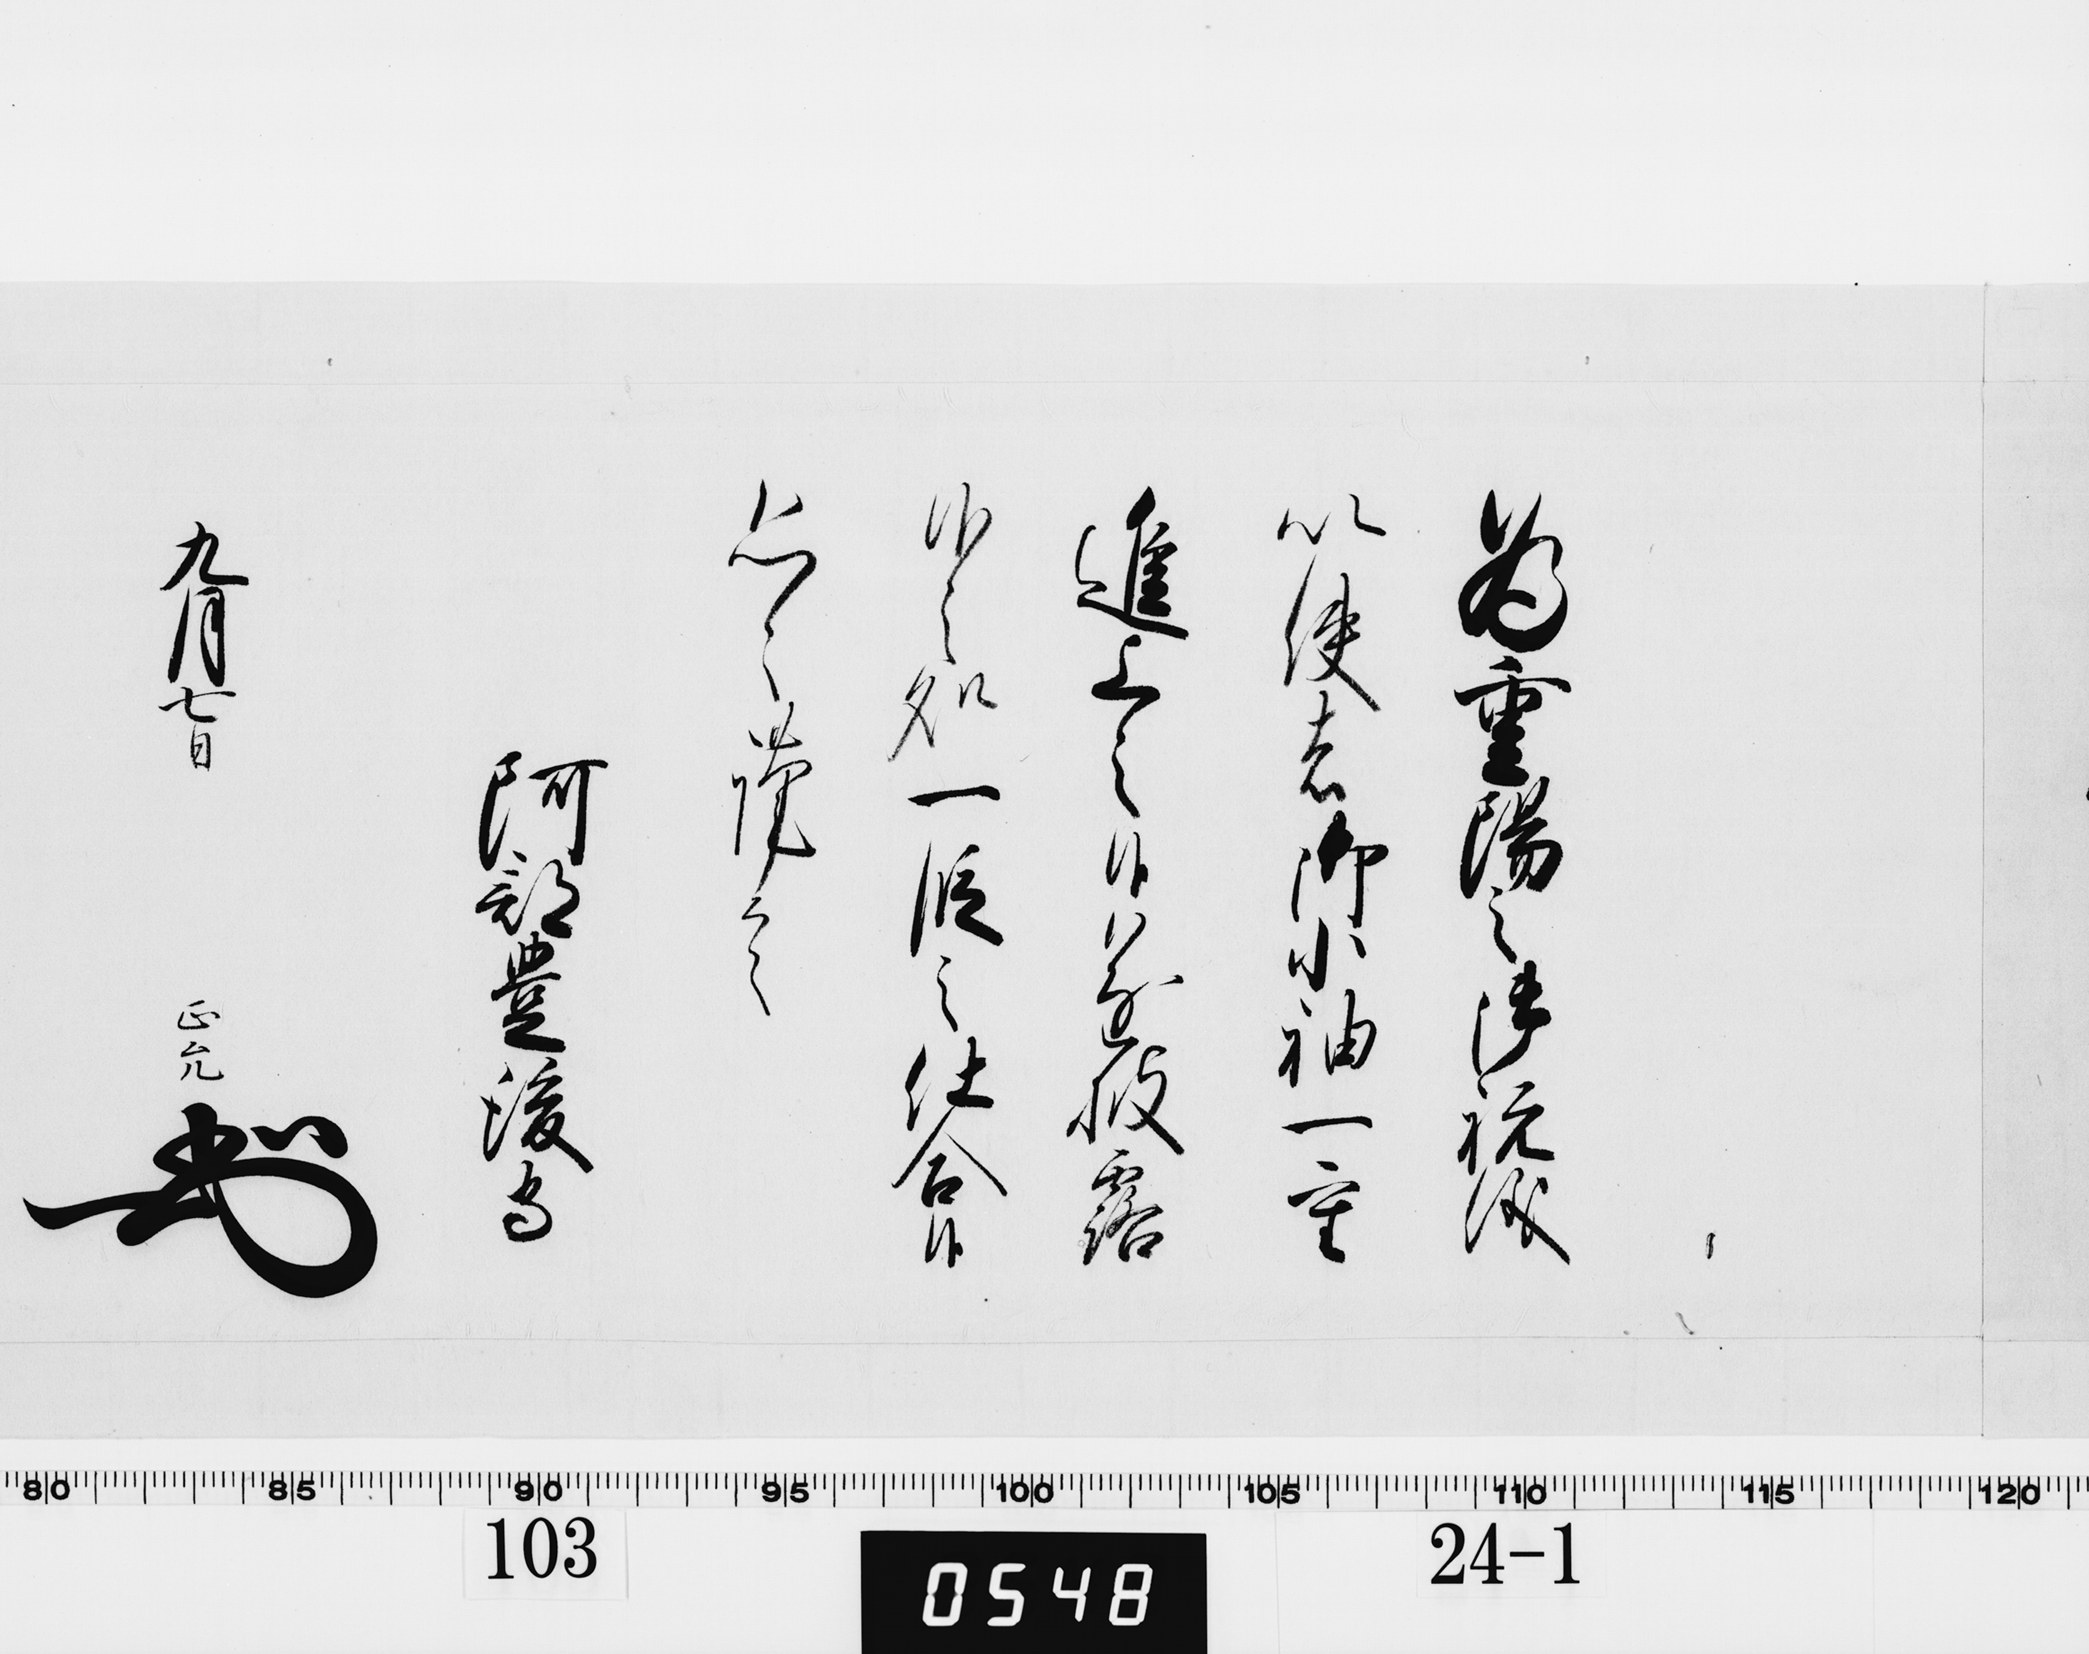 為重陽之御祝儀
以使者御小袖一重
進上之候遂披露
候之処一段之仕合候
恐々謹言
阿部豊後守
九月七日 正允
80 85 90 95 100 105 110 115 120
103 0548 24-1